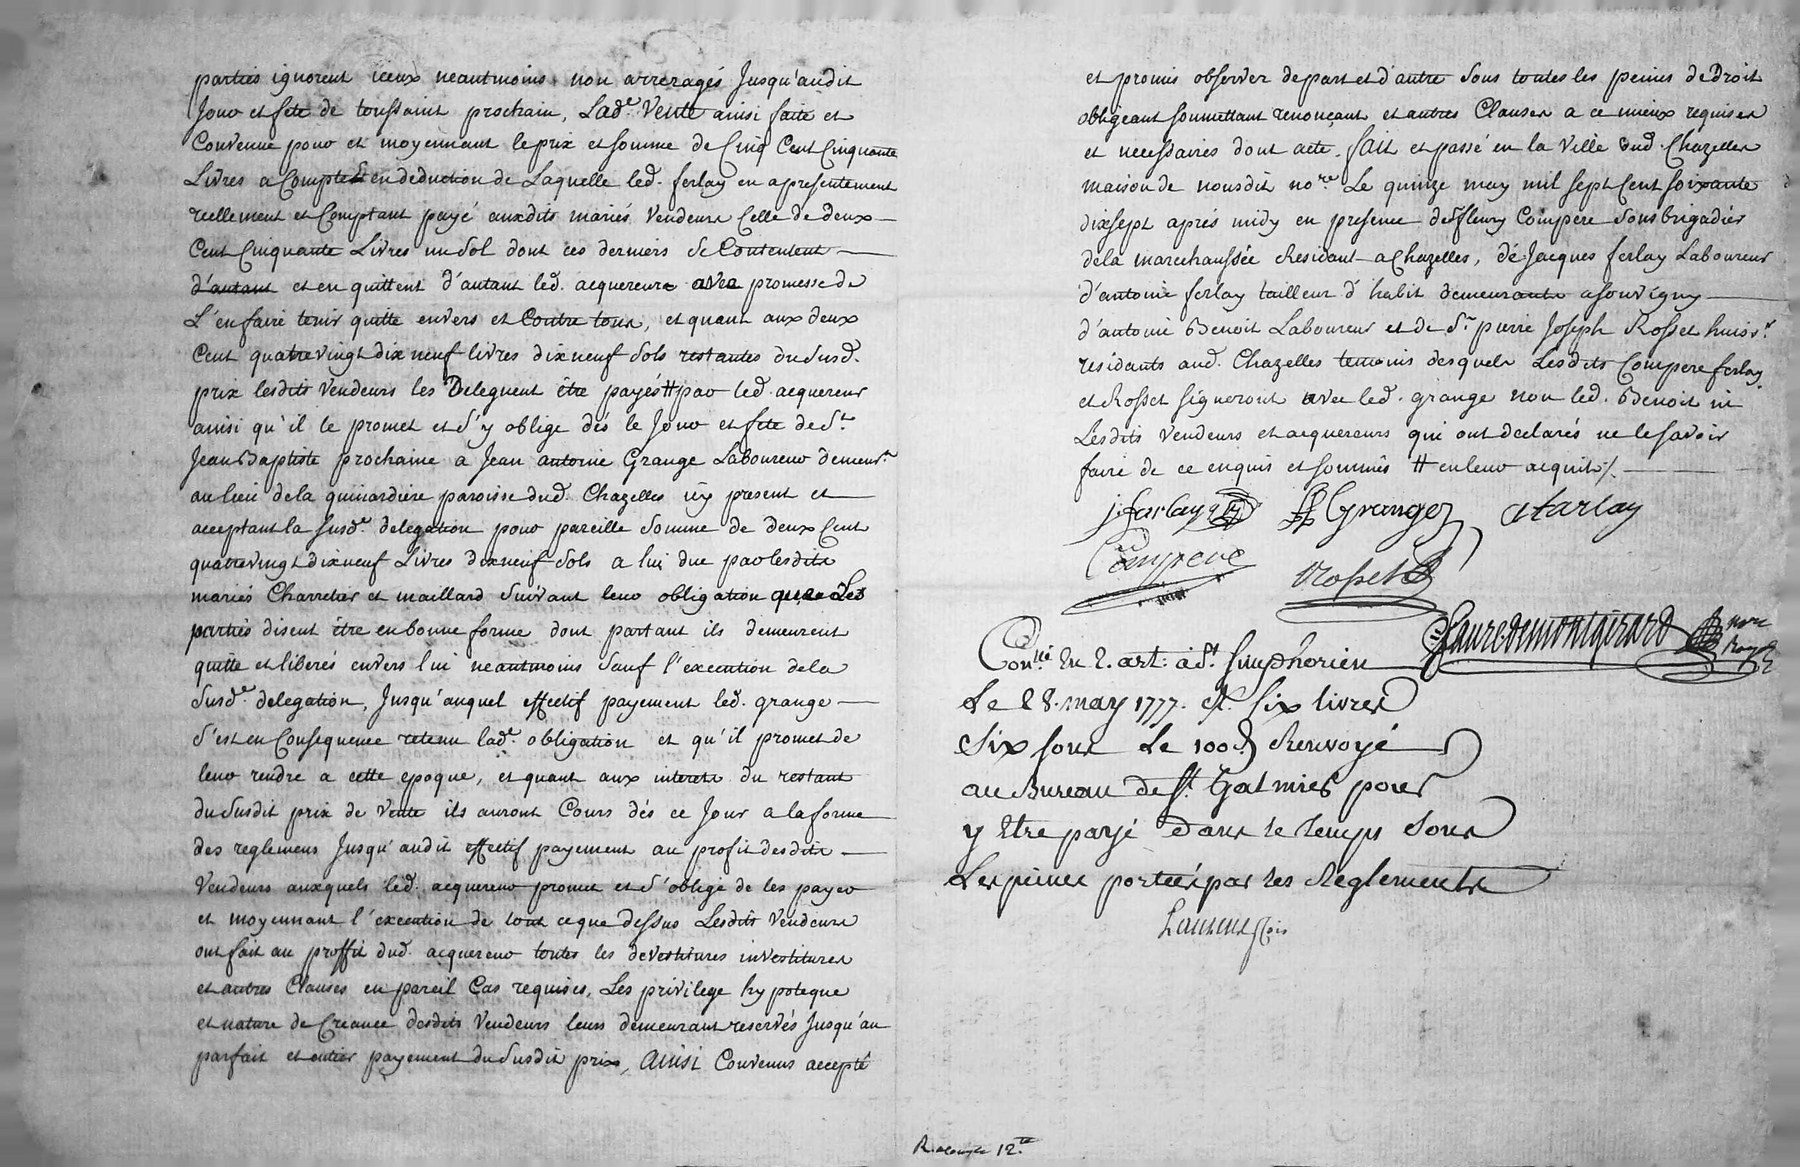 parties ignorent iceux neantmoins non arreragés Jusqu'audit
Jour et fete de toussaint prochain, Lad.e Vente ainsi faite et
Convenue pour et moyennant le prix et somme de Cinq Cent Cinquante
Livres a Compte et en deduction de Laquelle led. ferlay en a presentement
reellement et Comptant payé auxdits mariés Vendeurs Celle de deux
Cent Cinquante Livres un sol dont ces derniers se Contentent
d'autant et en quittent d'autant led. acquereur avec promesse de
L'en faire tenir quitte envers et Contre tous, et quant aux deux
Cent quatrevingt dix neuf livres dix neuf sols restantes du susd.
prix lesdits Vendeurs les Deleguent être payés # par led. acquereur
ainsi qu'il le promet et s'y oblige dés le Jour et fete de St.
Jean Baptiste prochaine a Jean antoine Grange Laboureur demeurt.
au lieu de la quinardiere paroisse dud. Chazelles icy present et
acceptant la susd.e delegation pour pareille somme de deux Cent
quatrevingt dixneuf Livres dixneuf sols a lui due par lesdits
mariés Charretier et maillard suivant leur obligation que Les
parties disent être en bonne forme dont partant ils demeurent
quitte et liberés envers lui neantmoins sauf l'execution de la
susd.e delegation, Jusqu'auquel effectif payement led. grange
s'est en Consequence retenu lad.e obligation et qu'il promet de
leur rendre a cette epoque, et quant aux interets du restant
du susdit prix de Vente ils auront Cours dés ce Jour a la forme
des reglemens Jusqu'audit effectif payement au profit desdits
Vendeurs auxquels led. acquereur promet et s'oblige de les payer
et moyennant l'execution de tout ce que dessus Lesdits Vendeurs
ont fait au proffit dud. acquereur toutes les devestitures investitures
et autres Clauses en pareil Cas requises, Les privilege hypoteque
et nature de Creance desdits Vendeurs leurs demeurant reservés Jusqu'au
parfait et entier payement du susdit prix, ainsi Convenus accepté
et promis observer de part et d'autre sous toutes les peines de Droit
obligeant soumettant renonçant et autres Clauses a ce mieux requises
et necessaires dont acte. fait et passé en la Ville dud. Chazelles
maison de nousdit no.re Le quinze may mil sept Cent soixante
dixsept aprés midy en presence de fleury Compere sousbrigadier
de la marechaussée Residant a Chazelles, de Jacques ferlay Laboureur
d'antoine ferlay tailleur d'habit demeurants a souvigny
d'antoine Benoit Laboureur et de Sr. pierre Joseph Rosset huissr.
residants aud. Chazelles temoins desquels Lesdits Compere ferlay
et Rosset signeront avec led. grange non led. Benoit ni
Lesdits Vendeurs et acquereurs qui ont declarés ne le savoir
faire de ce enquis et sommés # en leur acquit /.
j. farlay Grange a farlay
Compere Rosset
faure de montgirard no.re Royal
Con.lé en 2. art. à St. simphorien
Le 28. may 1777. R. six livres
six sous Le 100.e Renvoyé
au Bureau de St. Galmier pour
y Etre payé dans le temps sous
Les peines portées par les Reglements
Laurens
12.te